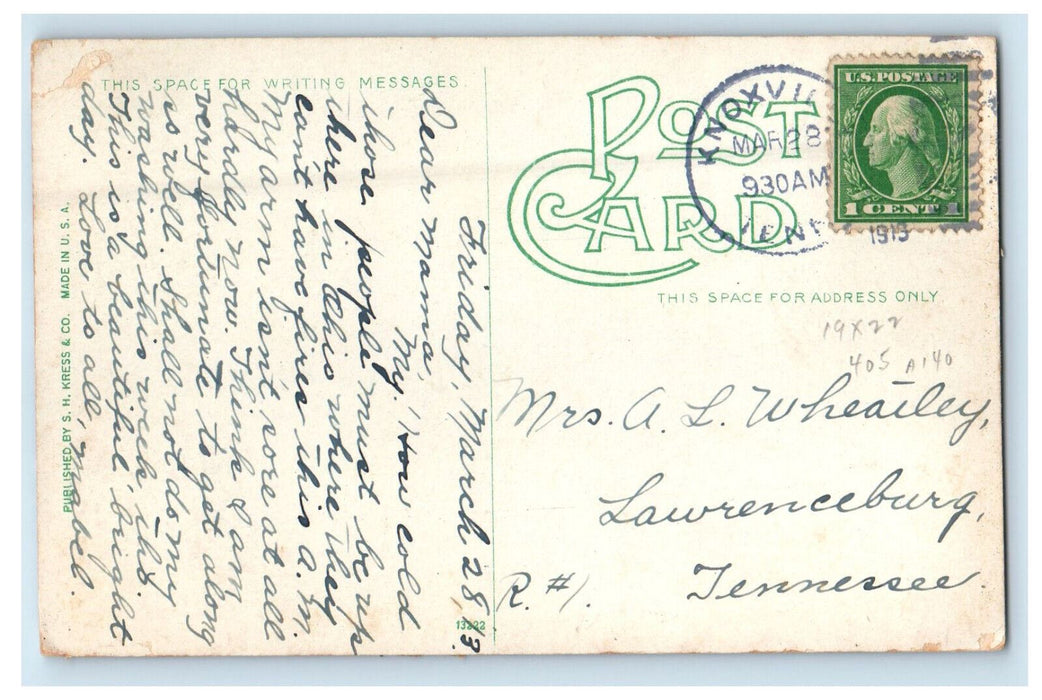 THIS SPACE FOR WRITING MESSAGES
Friday, March 28, 13.
Dear mama,
My, how cold
those people must be up
here in Ohio where they
can't have fires this a.m.
My arm isn't sore at all
hardly now. Think I am
very fortunate to get along
as well. Shall not do my
washing this week tho.
This is a beautiful, bright
day. Love to all, Mabel.
PUBLISHED BY S. H. KRESS & CO. MADE IN U.S.A.
13222
POST CARD
KNOXVIL
MAR 28
930 AM
TENN
1913
U.S. POSTAGE
1 CENT 1
THIS SPACE FOR ADDRESS ONLY
19X22
405 A140
Mrs. A. L. Wheatley,
Lawrenceburg,
Tennessee.
R. #1.